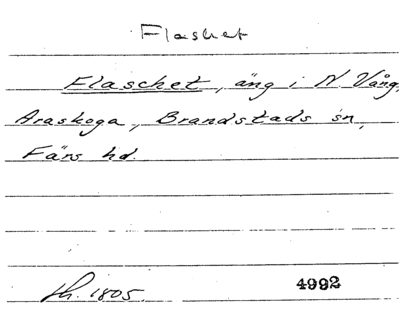 Flashet
Flaschet, äng i N. Vång,
Araskoga, Brandstads sn,
Färs hd.
Sh. 1805. 4992